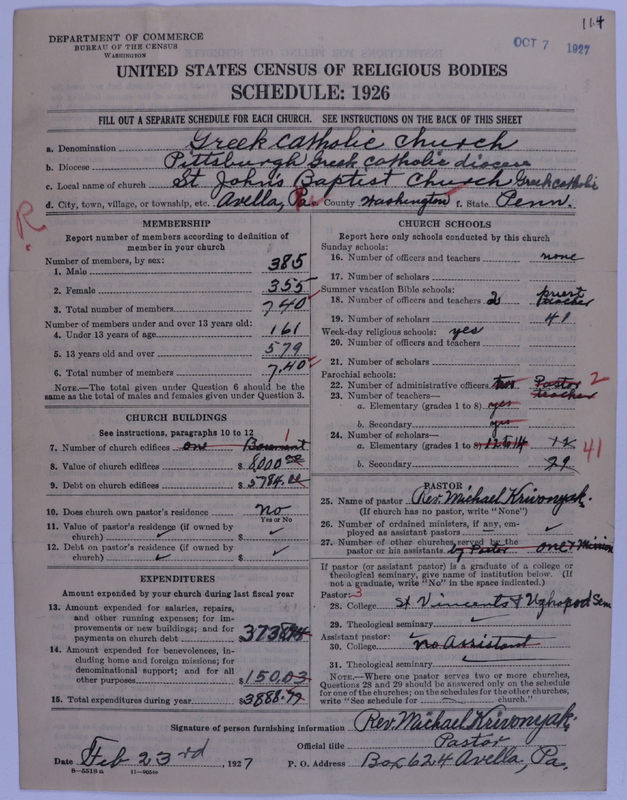 114
DEPARTMENT OF COMMERCE
BUREAU OF THE CENSUS
WASHINGTON
OCT 7 1927
UNITED STATES CENSUS OF RELIGIOUS BODIES
SCHEDULE: 1926
FILL OUT A SEPARATE SCHEDULE FOR EACH CHURCH. SEE INSTRUCTIONS ON THE BACK OF THIS SHEET
a. Denomination Greek Catholic Church
b. Diocese Pittsburgh Greek Catholic diocese
c. Local name of church St John's Baptist Church Greek Catholic
d. City, town, village, or township, etc. Avella, Pa. County Washington f. State Penn.
R.
MEMBERSHIP
Report number of members according to definition of
member in your church
Number of members, by sex:
1. Male 385
2. Female 355
3. Total number of members 740
Number of members under and over 13 years old:
4. Under 13 years of age 161
5. 13 years old and over 579
6. Total number of members 740
NOTE.—The total given under Question 6 should be the
same as the total of males and females given under Question 3.
CHURCH BUILDINGS
See instructions, paragraphs 10 to 12
7. Number of church edifices one Basement 1
8. Value of church edifices $ 8000
9. Debt on church edifices $ 5784
10. Does church own pastor's residence no
Yes or No
11. Value of pastor's residence (if owned by
church) $
12. Debt on pastor's residence (if owned by
church) $
EXPENDITURES
Amount expended by your church during last fiscal year
13. Amount expended for salaries, repairs,
and other running expenses; for im-
provements or new buildings; and for
payments on church debt
14. Amount expended for benevolences, in-
cluding home and foreign missions; for
denominational support; and for all
other purposes $150.03
15. Total expenditures during year $3888.
CHURCH SCHOOLS
Report here only schools conducted by this church
Sunday schools:
16. Number of officers and teachers none
17. Number of scholars
Summer vacation Bible schools:
18. Number of officers and teachers 2 priest teacher
19. Number of scholars 41
Week-day religious schools: yes
20. Number of officers and teachers
21. Number of scholars
Parochial schools:
22. Number of administrative officers two. Pastor 2
23. Number of teachers— teacher
a. Elementary (grades 1 to 8) yes
b. Secondary yes
24. Number of scholars—
a. Elementary (grades 1 to 8) 12 to 14 12
41
b. Secondary 29
PASTOR
25. Name of pastor Rev. Michael Krivonyak.
(If church has no pastor, write "None")
26. Number of ordained ministers, if any, em-
ployed as assistant pastors
27. Number of other churches served by the
pastor or his assistants by Pastor one & Mission
If pastor (or assistant pastor) is a graduate of a college or
theological seminary, give name of institution below. (If
not a graduate, write "No" in the space indicated.)
Pastor: 3
28. College St Vincents & Ughopod Sem
29. Theological seminary
Assistant pastor:
30. College no Assistant
31. Theological seminary
NOTE.—Where one pastor serves two or more churches,
Questions 28 and 29 should be answered only on the schedule
for one of the churches; on the schedules for the other churches,
write "See schedule for church."
Signature of person furnishing information Rev. Michael Krivonyak.
Official title Pastor
Date Feb 23rd, 1927 P. O. Address Box 624 Avella, Pa.
8—5518 a